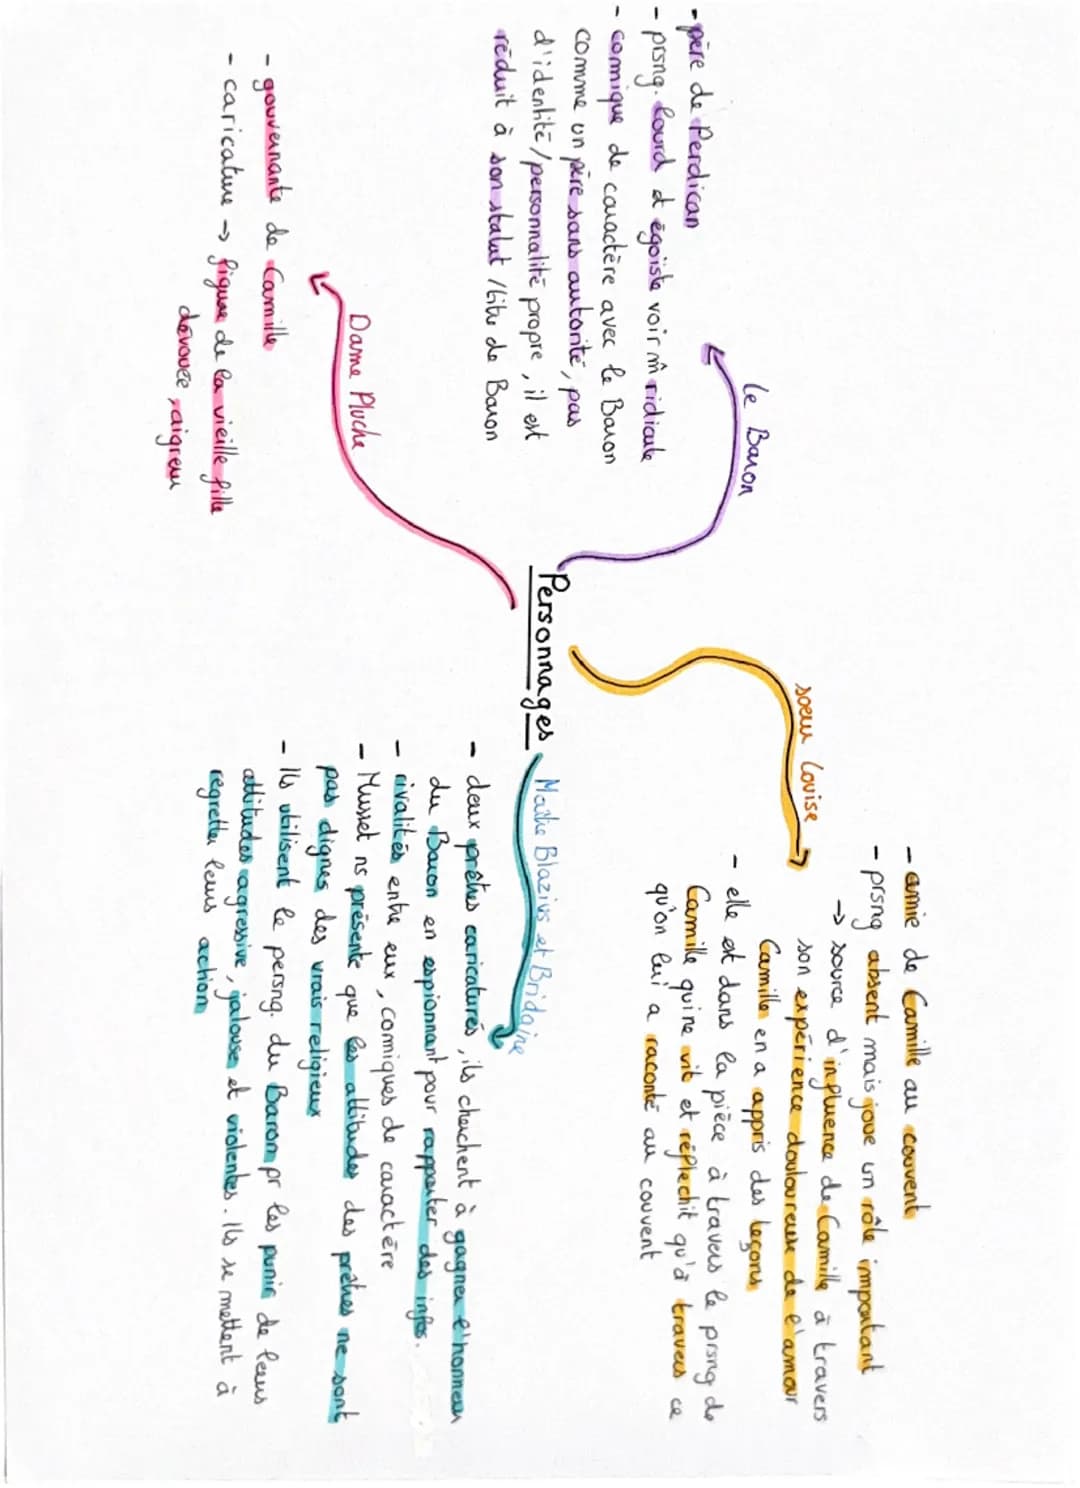 Personnages
Le Baron
- père de Perdican
- prsng. lourd et égoïste voir m̂ ridicule
- comique de caractère avec le Baron
comme un père sans autorité, pas
d'identité/personnalité propre, il est
réduit à son statut /titre de Baron
soeur Louise
- amie de Camille au couvent
- prsng absent mais joue un rôle important
→ source d'influence de Camille à travers
son expérience douloureuse de l'amour
Camille en a appris des leçons
- elle est dans la pièce à travers le prsng de
Camille qui ne vit et réflechit qu'à travers ce
qu'on lui a raconté au couvent
Dame Pluche
- gouvernante de Camille
- caricature → figure de la vieille fille
dévouée, aigreur
Maître Blazius et Bridaine
- deux prêtres caricaturés, ils cherchent à gagner l'honneur
du Baron en espionnant pour rapporter des infos.
- rivalités entre eux, comiques de caractère
- Musset ns présente que les attitudes des prêtres ne sont
pas dignes des vrais religieux
- Ils utilisent le persng. du Baron pr les punir de leurs
attitudes agressive, jalouse et violentes. Ils se mettent à
regretter leurs action